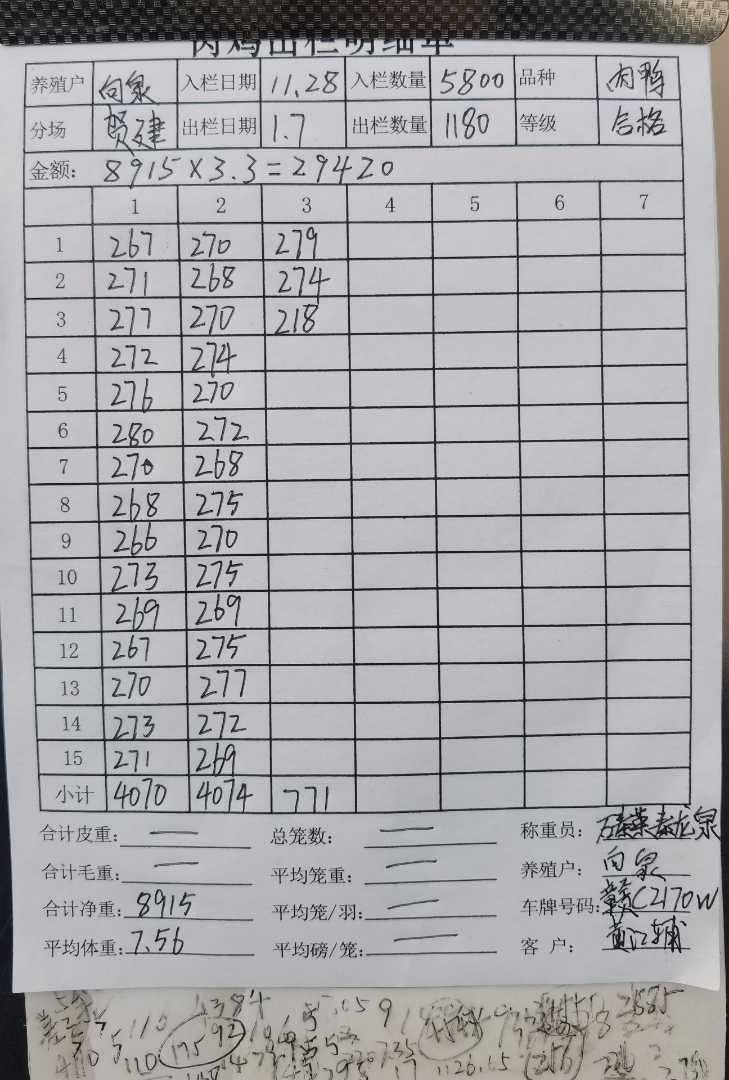 肉鸡出栏明细单
养殖户 向泉 入栏日期 11.28 入栏数量 5800 品种 肉鸭
分场 贺建 出栏日期 1.7 出栏数量 1180 等级 合格
金额: 8915×3.3=29420
1 2 3 4 5 6 7
1 267 270 279
2 271 268 274
3 277 270 218
4 272 274
5 276 270
6 280 272
7 270 268
8 268 275
9 266 270
10 273 275
11 269 269
12 267 275
13 270 277
14 273 272
15 271 269
小计 4070 4074 771
合计皮重: — 总笼数: — 称重员: 龙泉
合计毛重: — 平均笼重: — 养殖户: 向泉
合计净重: 8915 平均笼/羽: — 车牌号码: 赣C2170W
平均体重: 7.56 平均磅/笼: — 客 户: 黄江辅